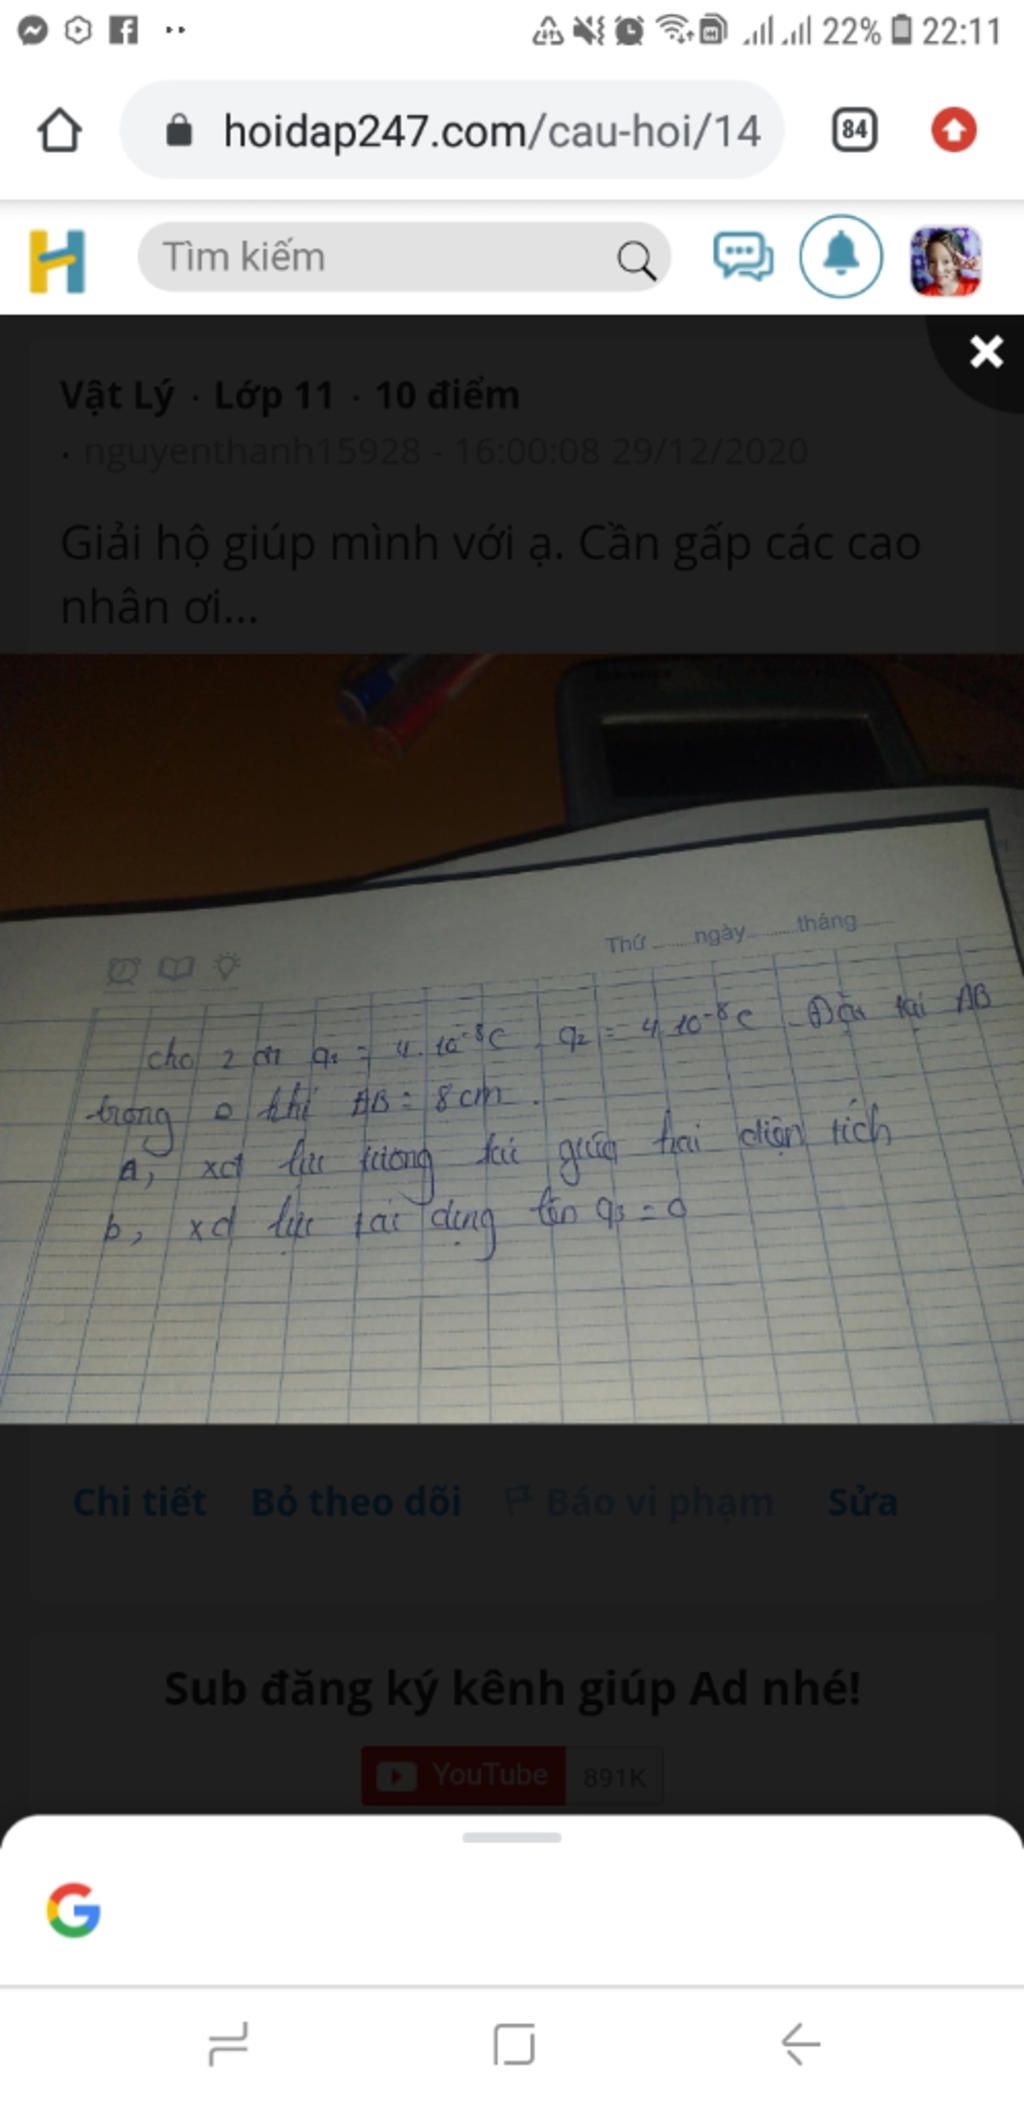 22% 22:11
hoidap247.com/cau-hoi/14
84
H
Tìm kiếm
Vật Lý · Lớp 11 · 10 điểm
· nguyenthanh15928 - 16:00:08 29/12/2020
Giải hộ giúp mình với ạ. Cần gấp các cao
nhân ơi...
Thứ ........ngày..........tháng.......
cho 2 đt q₁ = 4.10⁻⁸C. q₂ = 4.10⁻⁸C. Đặt tại AB
trong o khí AB = 8cm.
a, xđ lực tương tác giữa hai điện tích
b, xđ lực tác dụng lên q₃ = 0
Chi tiết Bỏ theo dõi Báo vi phạm Sửa
Sub đăng ký kênh giúp Ad nhé!
YouTube 891K
G